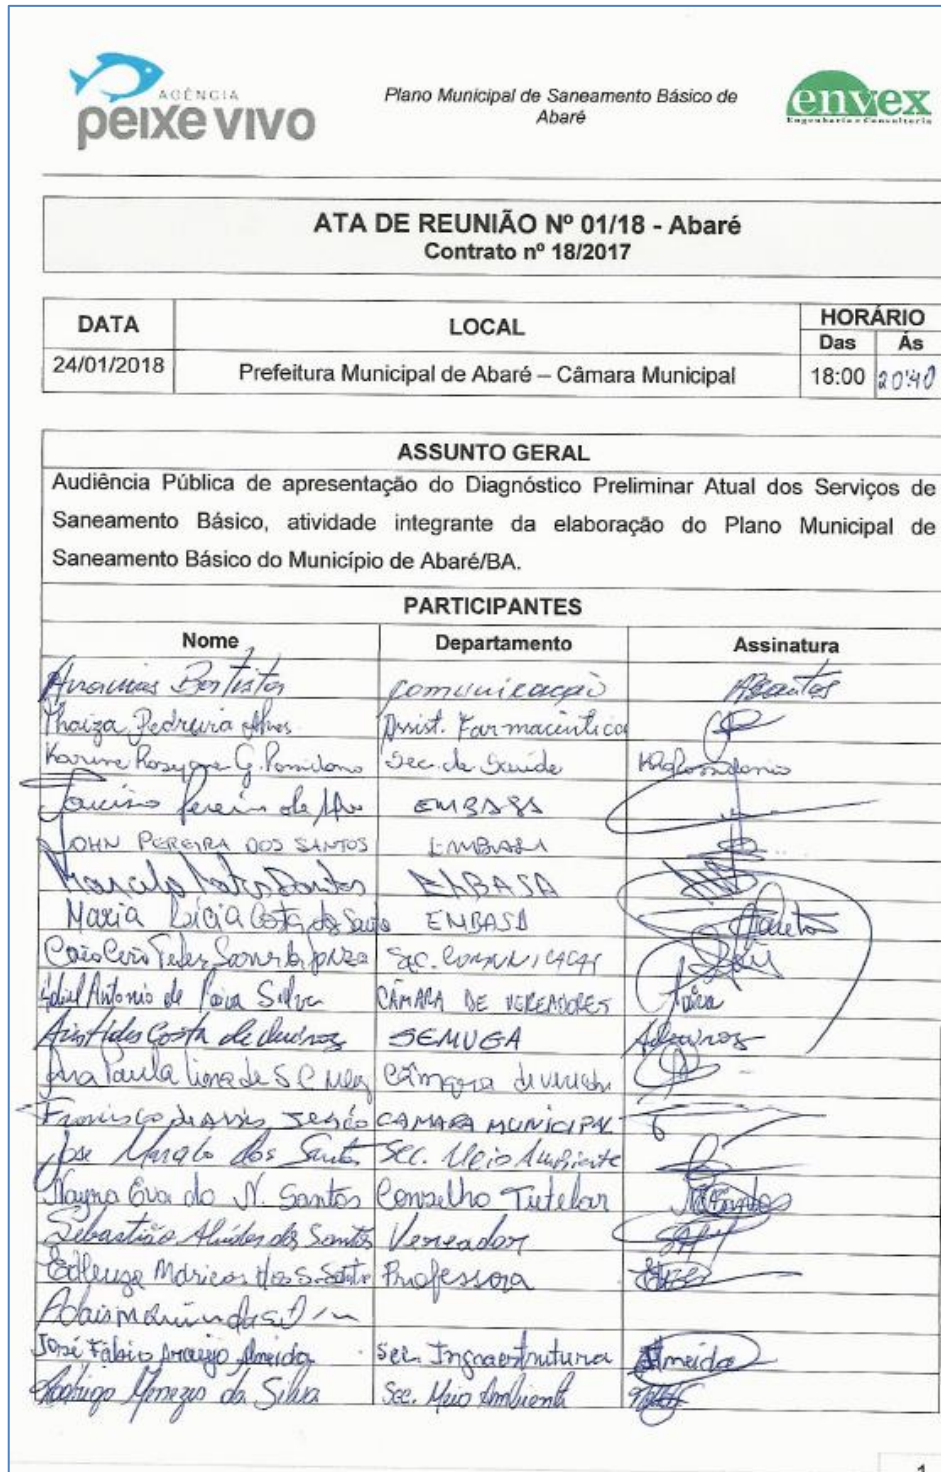 AGÊNCIA
peixe vivo
Plano Municipal de Saneamento Básico de
Abaré
envex
Engenharia e Consultoria
ATA DE REUNIÃO Nº 01/18 - Abaré
Contrato nº 18/2017
DATA LOCAL HORÁRIO
Das Ás
24/01/2018 Prefeitura Municipal de Abaré – Câmara Municipal 18:00 20:40
ASSUNTO GERAL
Audiência Pública de apresentação do Diagnóstico Preliminar Atual dos Serviços de
Saneamento Básico, atividade integrante da elaboração do Plano Municipal de
Saneamento Básico do Município de Abaré/BA.
PARTICIPANTES
Nome Departamento Assinatura
Batista comunicação
Thaiza Pedreira Alves Assist. Farmacêutica
Karine G. Sec. de Saúde
Pereira EMBASA
JOHN PEREIRA DOS SANTOS EMBASA
Marcelo Santos EMBASA
Maria Lúcia Costa dos Santos EMBASA
Sec. COMUNICAÇÃO
Antonio de Paiva Silva CÂMARA DE VEREADORES Paiva
Aristides Costa de Queiroz SEMUGA AQueiroz
Ana Paula Lima de S. C. Câmara de
Francisco de Assis CAMARA MUNICIPAL
Jose dos Santos Sec. Meio Ambiente
Nayna Eva do N. Santos Conselho Tutelar Santos
Sebastião Alcides dos Santos Vereador
Edleuza dos S. Professora
José Fábio Araújo Almeida Sec. Infraestrutura Almeida
Rodrigo Menezes da Silva Sec. Meio Ambiente
1